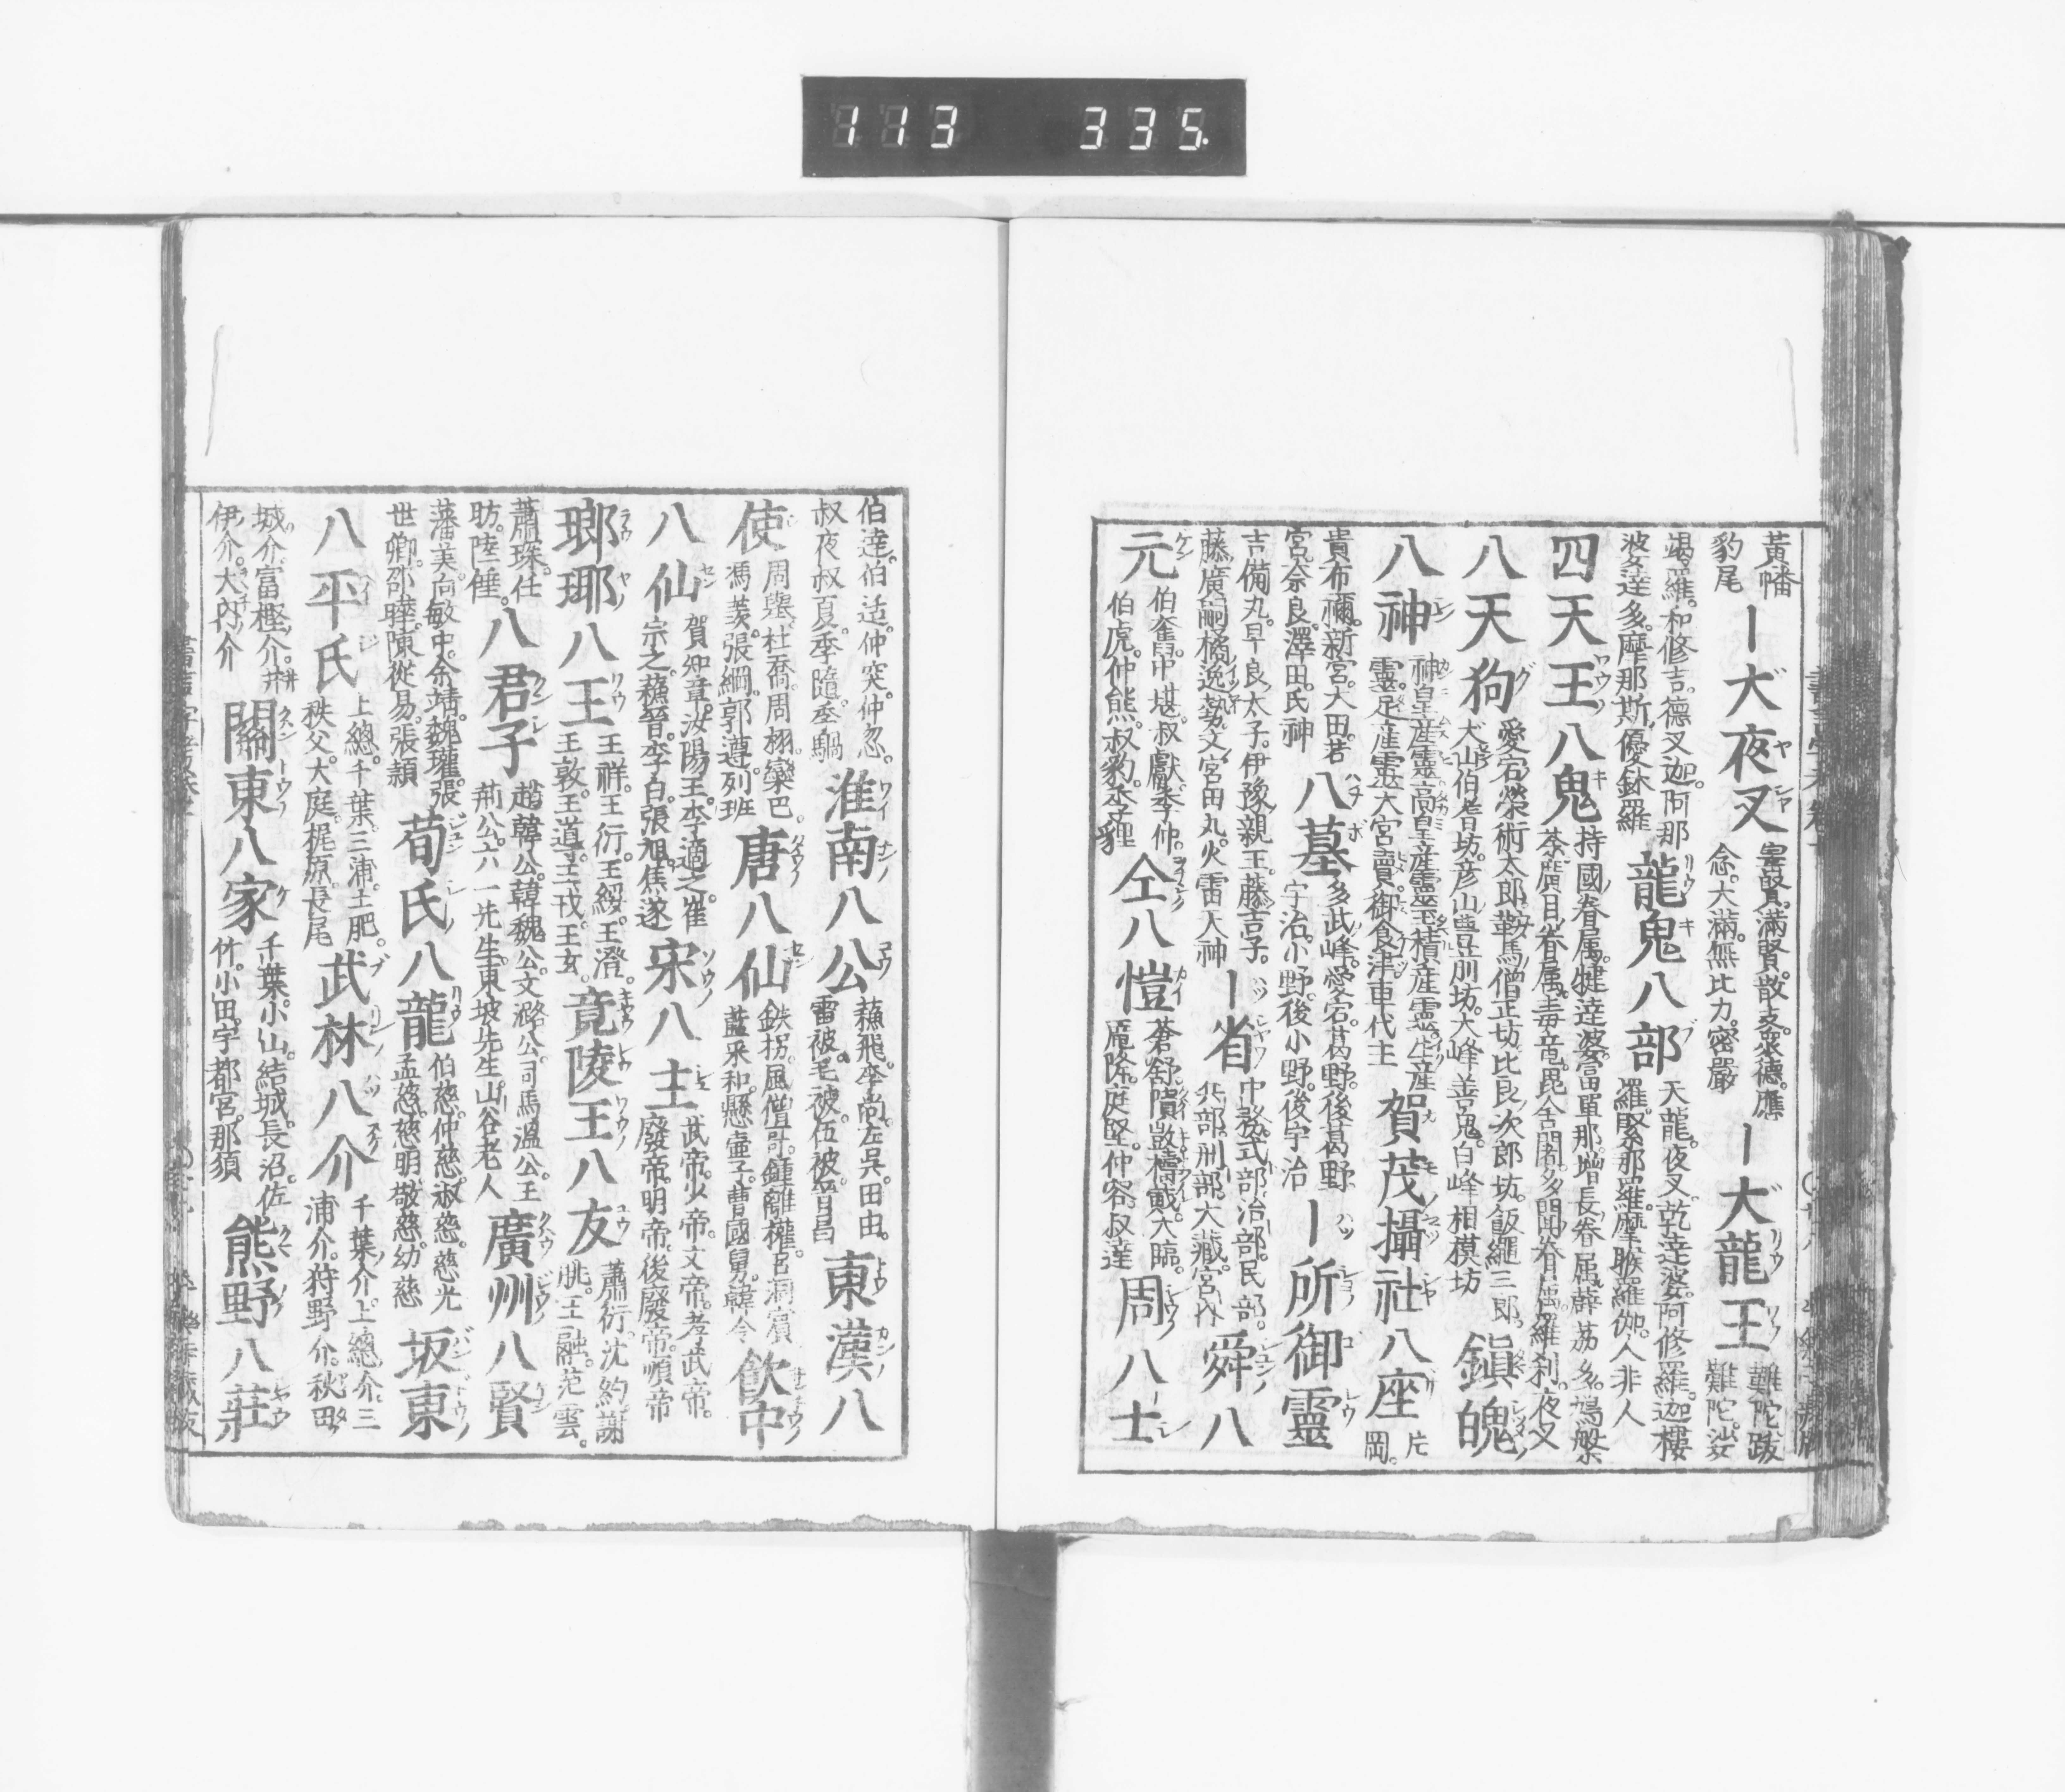 113 335.
黃幡
豹尾
｜大夜叉
寳賢。滿賢。散支。衆德。應
念。大滿。無比力。密嚴
｜大龍王
難陀。跋
難陀。娑
竭羅。和修吉。德叉迦。阿那
婆達多。摩那斯。優鉢羅
龍鬼八部
天龍。夜叉。乾達婆。阿修羅。迦樓
羅。緊那羅。摩睺羅伽。人非人
四天王八鬼
持國眷属。犍達婆。富單那。増長眷属。薜茘多。鳩槃
荼。廣目眷属。毒竜。毘舎闍。多聞眷属。羅刹。夜叉
八天狗
愛宕榮術太郎。鞍馬僧正坊。比良次郎坊。飯繩三郎。
大山伯耆坊。彦山豊前坊。大峰善鬼。白峰相模坊
鎭魄
八神
神皇産靈。高皇産靈。玉積産靈。生産
靈。足産靈。大宮賣。御食津。事代主
賀茂攝社八座
片
岡。
貴布禰。新宮。大田。若
宮。奈良。澤田。氏神
八墓
多武峰。愛宕。葛野。後葛野
宇治。小野。後小野。後宇治
｜所御靈
吉備丸。早良太子。伊豫親王。藤吉子。
藤廣嗣。橘逸勢。文宮田丸。火雷天神
｜省
中務。式部。冶部。民部。
兵部。刑部。大藏。宮内
舜八
元
伯奮。中堪。叔獻。季仲。
伯虎。仲熊。叔豹。季貍
仝八愷
蒼舒。隤敳。檮戭。大臨。
厖降。庭堅。仲容。叔達
周八士
伯達。伯适。仲突。仲忽。
叔夜。叔夏。季隨。季騧
淮南八公
蘓飛。李尚。左呉。田由。
雷被。毛被。伍被。晋昌
東漢八
使
周擧。杜喬。周栩。欒巴。
馮羡。張綱。郭遵。列班
唐八仙
鉄拐。風僧哥。鍾離權。呂洞賓
藍采和。懸壷子。曹國舅。韓令
飲中
八仙
賀知章。汝陽王。李適之。崔
宗之。蘓晉。李白。張旭。焦遂
宋八士
武帝。少帝。文帝。孝武帝。
廢帝。明帝。後廢帝。順帝
瑯琊八王
王祥。王衍。王綏。王澄。
王敦。王道。王戎。王玄。
竟陵王八友
蕭衍。沈約。謝
朓。王融。范雲。
蕭琛。任
昉。陸倕。
八君子
趙韓公。韓魏公。文潞公。司馬溫公。王
荊公。六一先生。東坡先生。山谷老人
廣州八賢
藩美。向敏中。余靖。魏瓘。張
世卿。邵曄。陳從易。張頴
荀氏八龍
伯慈。仲慈。叔慈。慈光
孟慈。慈明。敬慈。幼慈
坂東
八平氏
上總。千葉。三浦。土肥。
秩父。大庭。梶原。長尾
武林八介
千葉介。上總介。三
浦介。狩野介。秋田
城介。富樫介。井
伊介。大內介
關東八家
千葉。小山。結城。長沼。佐
竹。小田。宇都宮。那須
熊野八莊